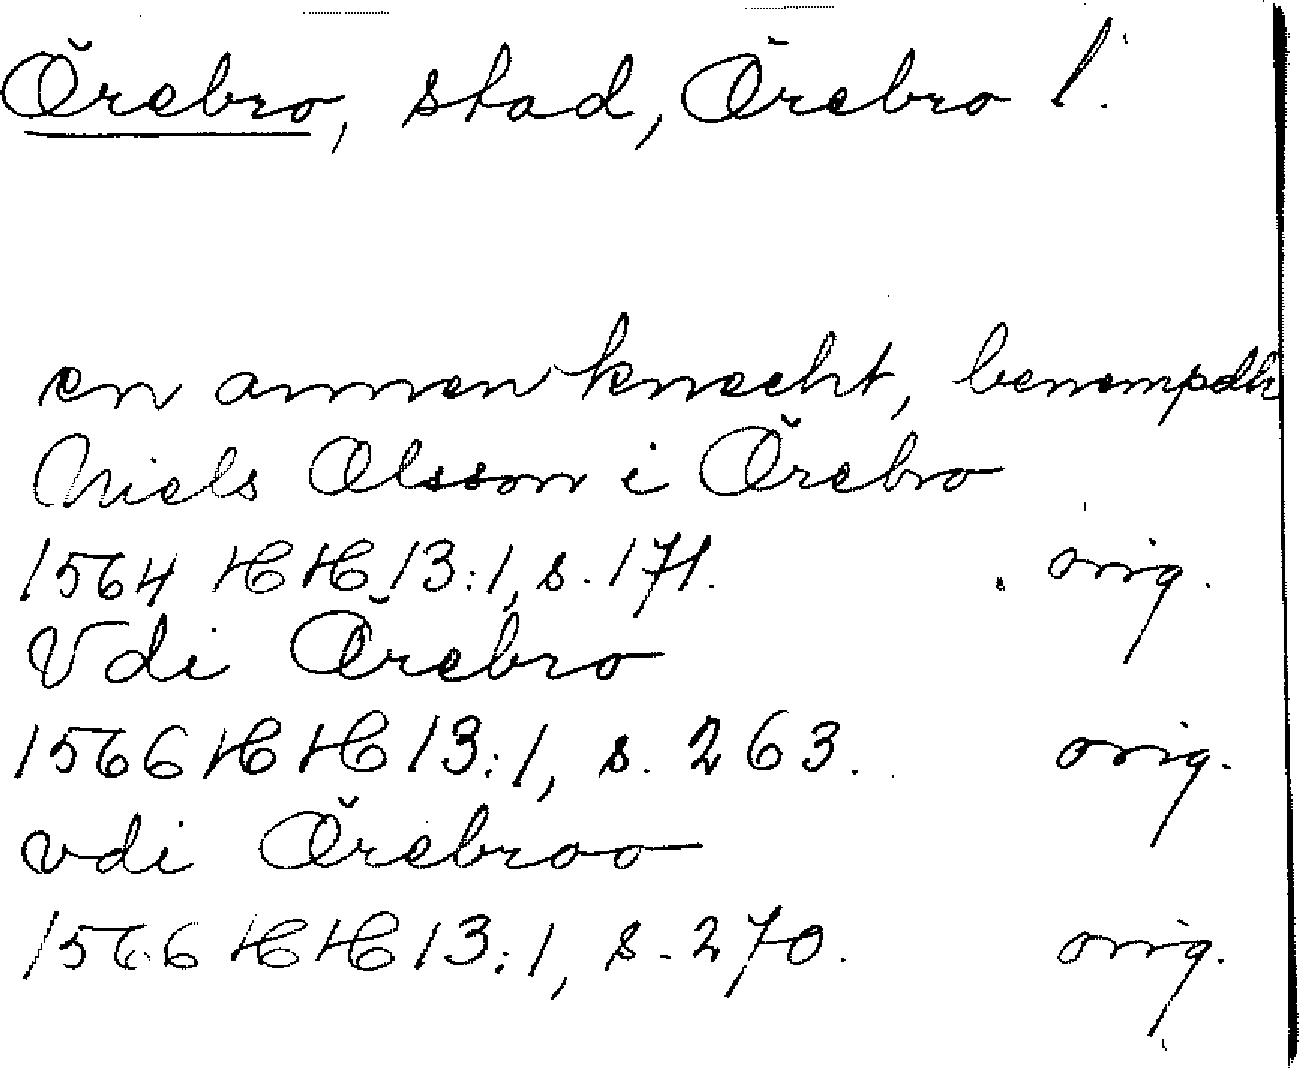 Örebro, stad, Örebro l.
en annen knecht, benempdh
Niels Olsson i Örebro
1564 HH 13:1, s. 171. orig.
Vdi Örebro
1566 HH 13:1, s. 263. orig.
vdi Örebroo
1566 HH 13:1, s. 270. orig.